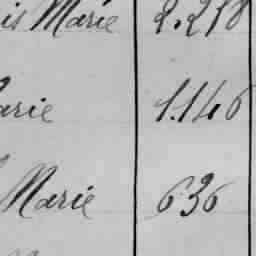 is Marie 2.218
arie 1.146
Marie 636